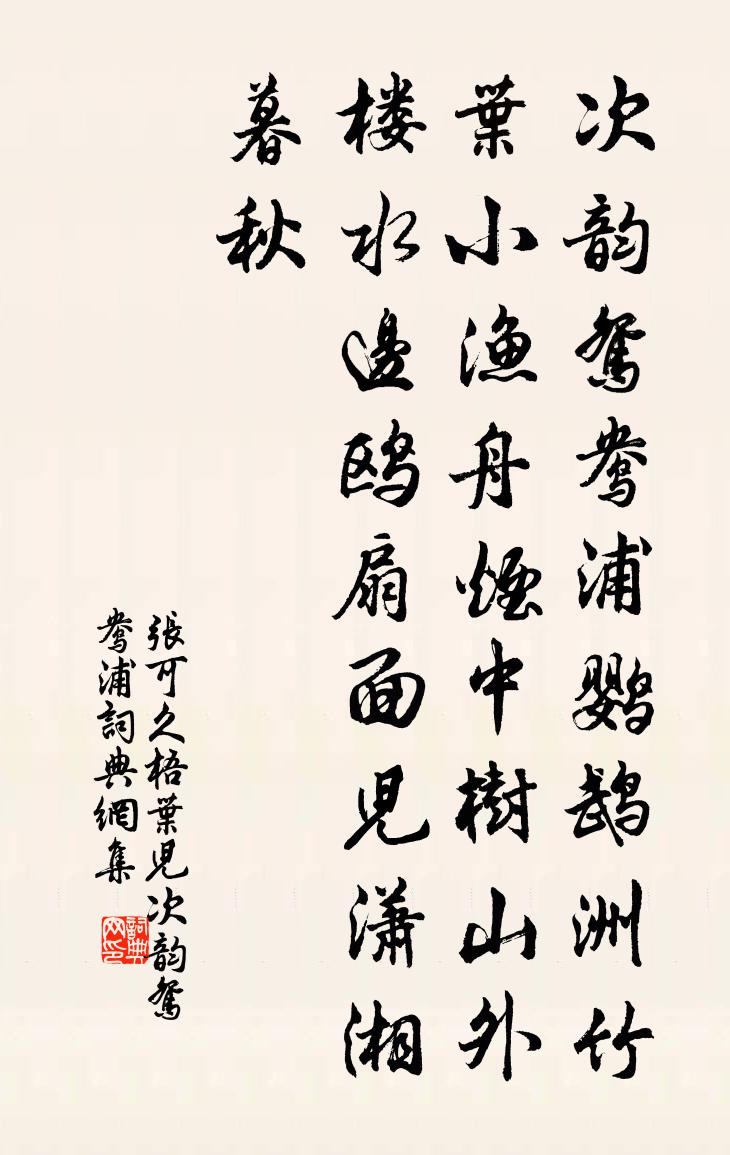 次韵鴛鴦浦鹦鹉洲竹
葉小漁舟煙中樹山外
楼水邊鸥扇面兒潇湘
暮秋
張可久梧葉兒次韵鴛
鴦浦詞典網集
詞典
网印